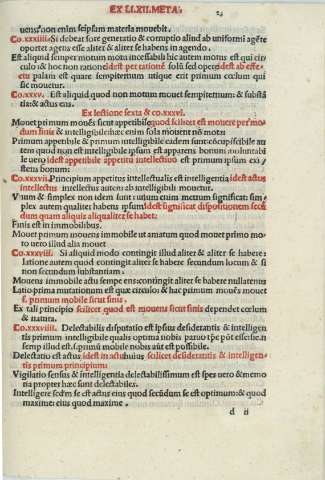 EX LI.XII.META.
uens: non enim seipsam materia mouebit.
Co.xxxiiii. Si debeat fore generatio & corruptio aliud ab uniformi agēte
oportet agens esse aliter & aliter se habens in agendo.
Est aliquid semper motum motu incessabili hic autem motus est qui cir
culo & hoc non ratione idest per rationē solū sed opere idest ab esse
ctu palam est quare sempiternum utique erit primum cœlum qui
sic mouetur.
Co.xxxv. Est aliquid quod non motum mouet sempiternum: & substā
tia: & actus ens.
Ex lectione sexta & co.xxxvi.
Mouet primum mouēs sicut appetibile quod scilicet est mouere per mo
dum finis & intelligibile hæc enim sola mouent nō mota
Primum appetibile & primum intelligibile eadem sunt: cōcupiscibile au
tem quod non est intelligibile ipsum est apparens bonum uoluntabi
le uero idest appetibile appetitu intellectiuo est primum ipsum exi
stens bonum:
Co.xxxvii. Principium appetitus intellectualis est intelligentia idest actus
intellectus intellectus autem ab intelligibili mouetur.
Vnum & simplex non idem sunt: unum enim metrum significat: sim
plex autem qualiter habens ipsum idest significat dispositionem secū
dum quam aliquis aliqualiter se habet:
Finis est in immobilibus.
Mouet primum mouens immobile ut amatum quod mouet primo mo
to uero illud alia mouet
Co.xxxviii. Si aliquid modo contingit illud aliter & aliter se habere:
latione autem quod contingit aliter se habere secundum locum & si
non secundum substantiam:
Mouens immobile actu sempe ens: contingit aliter se habere nullatenus
Latio prima mutationum est quæ circulo: & hac primum mouēs mouet
s. primum mobile sicut finis.
Ex tali principio scilicet quod est mouens sicut finis dependet cœlum
& natura.
Co.xxxviiii. Delectabilis disputatio est ipsius desiderantis & intelligen
tis primum intelligibile qualis optima nobis paruo tp̄e pōt esse: sic .n.
semp illud est. s. primū mobile nobis aūt est possibile.
Delectatio est actus idest in actu huius scilicet desiderantis & intelligen
tis primum principium:
Vigilatio sensus & intelligentia delectabilissimum est spes uero & memo
ria propter hæc sunt delectabiles.
Intelligere secūm se est actus eius quod secūdum se est optimum: & quod
maxime: eius quod maxime.
d ii